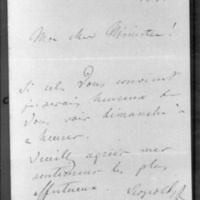 Mon cher Ministre!
Si cela vous convient
je serais heureux de
vous voir dimanche à
heures.
Veuillez agréer mes
sentiments les plus
affectueux. Leopold